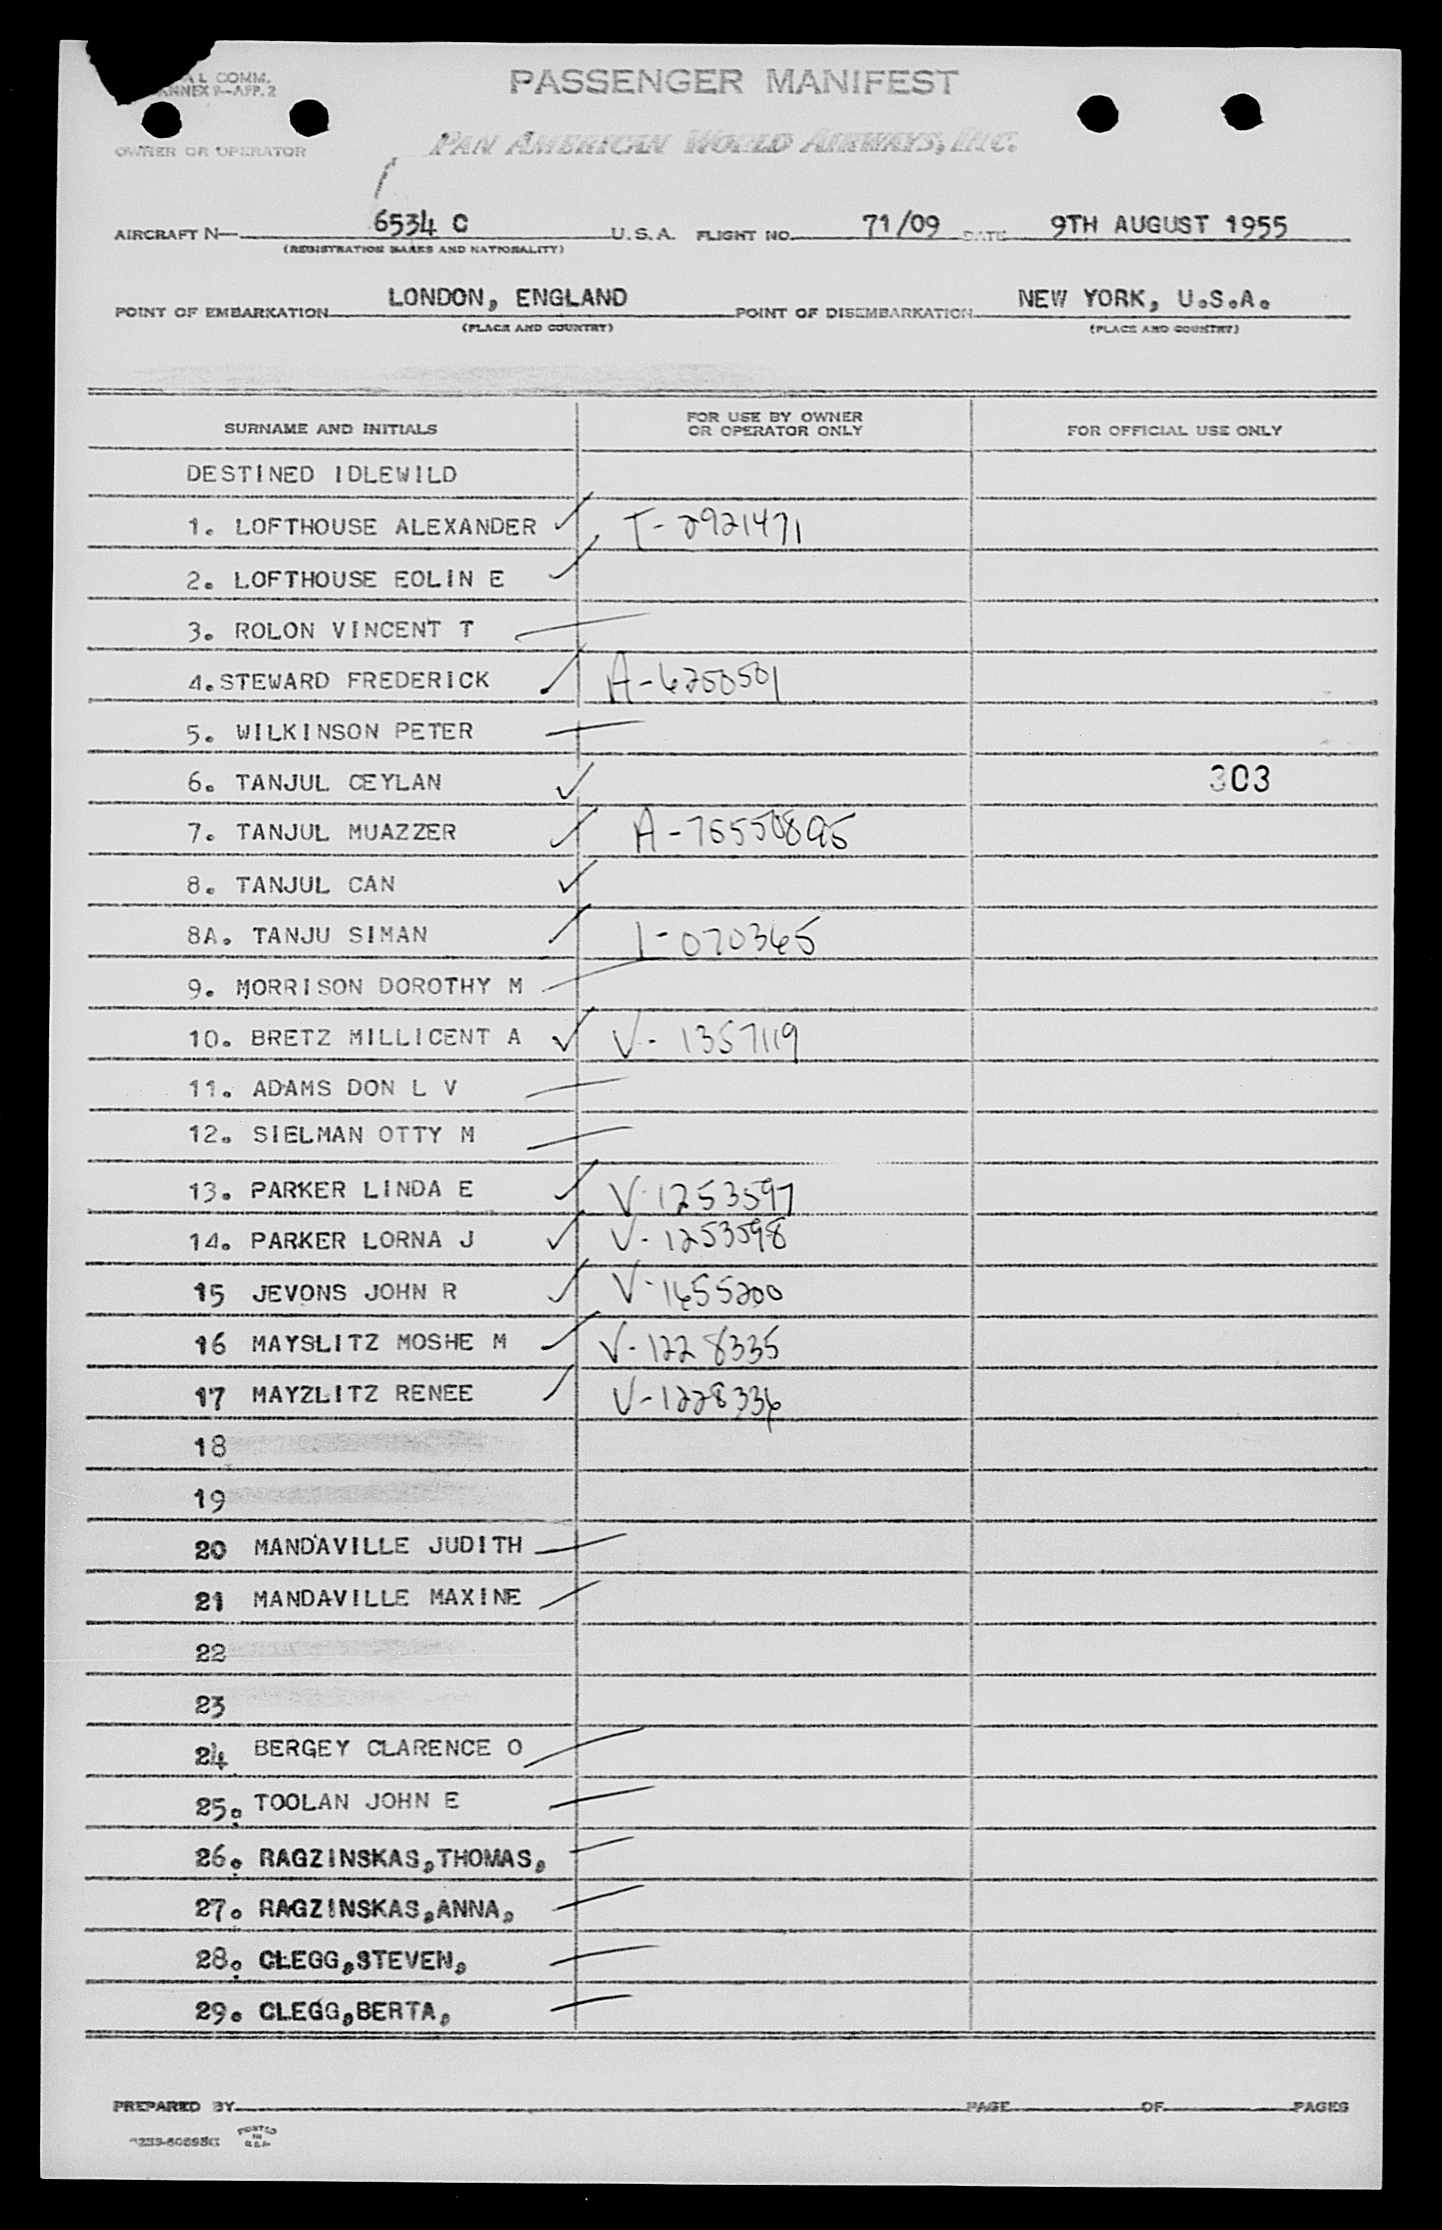 AL COMM.
ANNEX 9—APP. 2
PASSENGER MANIFEST
OWNER OR OPERATOR
PAN AMERICAN WORLD AIRWAYS, INC.
AIRCRAFT N— 6534 C U.S.A. FLIGHT NO. 71/09 DATE 9TH AUGUST 1955
(REGISTRATION MARKS AND NATIONALITY)
POINT OF EMBARKATION LONDON, ENGLAND POINT OF DISEMBARKATION NEW YORK, U.S.A.
(PLACE AND COUNTRY) (PLACE AND COUNTRY)
SURNAME AND INITIALS FOR USE BY OWNER OR OPERATOR ONLY FOR OFFICIAL USE ONLY
DESTINED IDLEWILD
1. LOFTHOUSE ALEXANDER T-2921471
2. LOFTHOUSE EOLIN E
3. ROLON VINCENT T
4. STEWARD FREDERICK A-6250501
5. WILKINSON PETER
6. TANJUL CEYLAN 303
7. TANJUL MUAZZER A-76550895
8. TANJUL CAN
8A. TANJU SIMAN I-070365
9. MORRISON DOROTHY M
10. BRETZ MILLICENT A V-1357119
11. ADAMS DON L V
12. SIELMAN OTTY M
13. PARKER LINDA E V-1253597
14. PARKER LORNA J V-1253598
15 JEVONS JOHN R V-1655200
16 MAYSLITZ MOSHE M V-1228335
17 MAYZLITZ RENEE V-1228336
18
19
20 MANDAVILLE JUDITH
21 MANDAVILLE MAXINE
22
23
24 BERGEY CLARENCE O
25. TOOLAN JOHN E
26. RAGZINSKAS,THOMAS,
27. RAGZINSKAS,ANNA,
28. CLEGG,STEVEN,
29. CLEGG,BERTA,
PREPARED BY PAGE OF PAGES
PRINTED IN U.S.A.